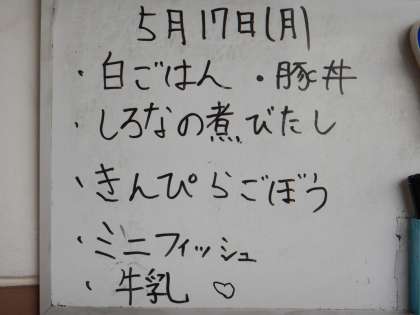 5月17日(月)
・白ごはん ・豚丼
・しろなの煮びたし
・きんぴらごぼう
・ミニフィッシュ
・牛乳 ♡